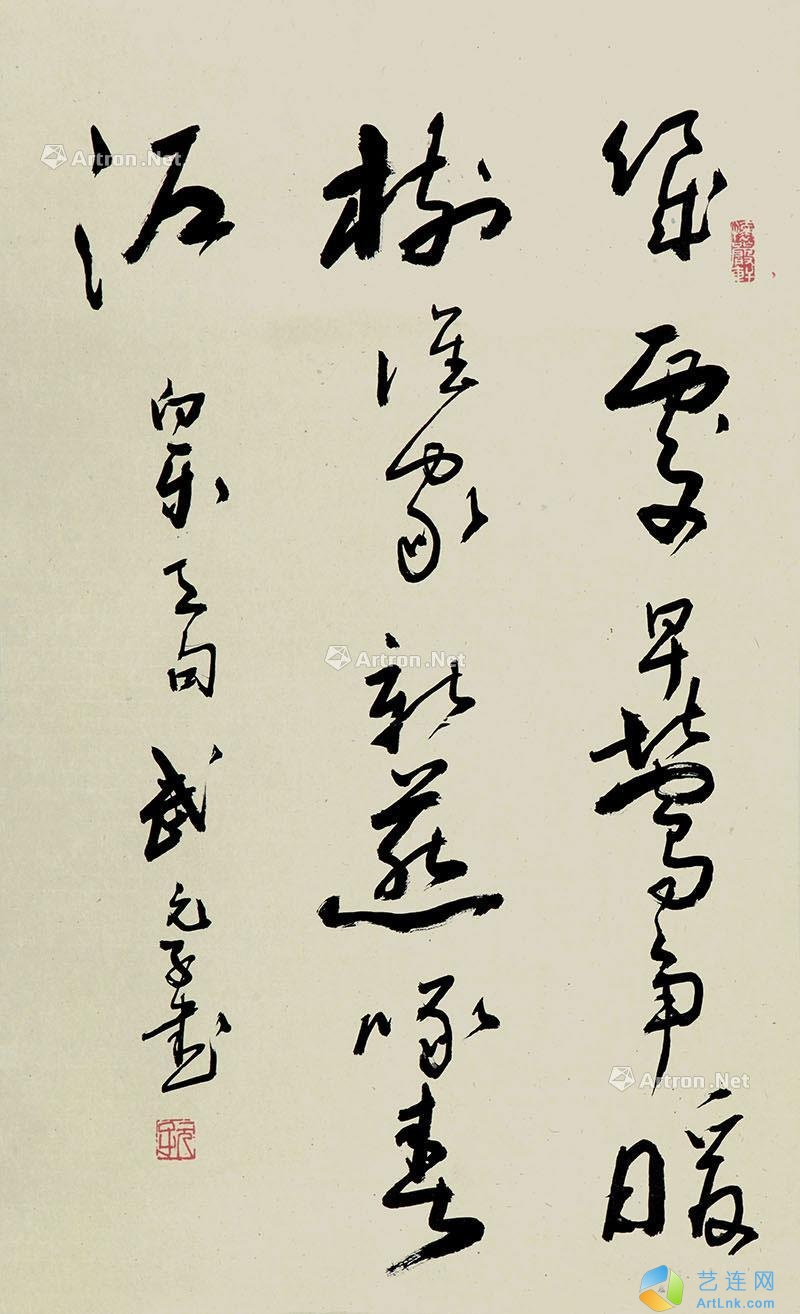 幾處早鶯爭暖
樹誰家新燕啄春
泥
白樂天句 武元子書
Artron.Net
Artron.Net
Artron.Net
艺连网
ArtLnk.com